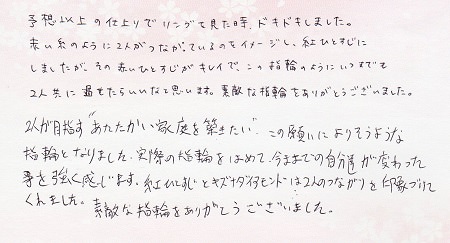 予想以上の仕上りでリングを見た時、ドキドキしました。
赤い糸のように2人がつながっているのをイメージし、紅ひとすじに
しましたが、その赤いひとすじがキレイで、この指輪のようにいつまでも
2人共に過せたらいいなと思います。素敵な指輪をありがとうございました。
2人が目指す"あたたかい家庭を築きたい"、この願いによりそうような
指輪となりました。実際の指輪をはめて、今までの自分達が変わった
事を強く感じます。紅ひとすじとキズナダイヤモンドは2人のつながりを印象づけて
くれました。素敵な指輪をありがとうございました。